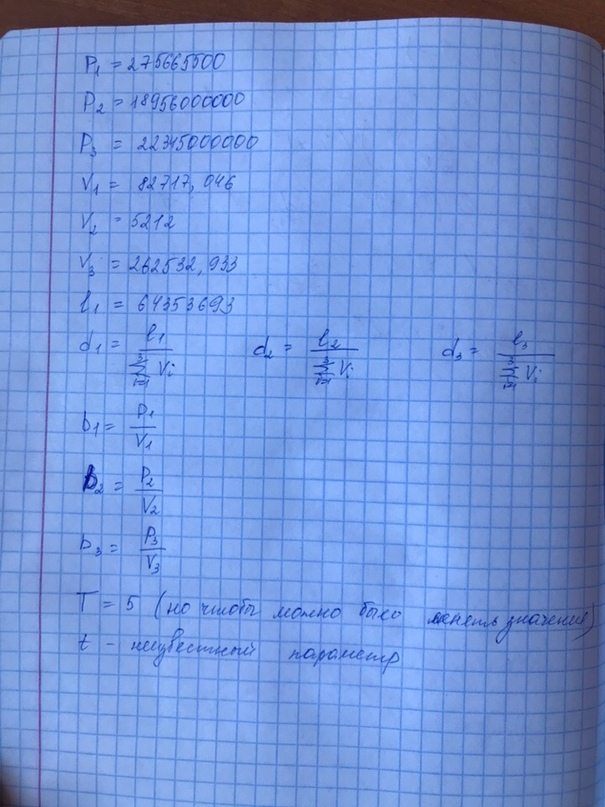 P₁ = 275665500
P₂ = 18956000000
P₃ = 22345000000
V₁ = 82717,046
V₂ = 5212
V₃ = 262532,933
l₁ = 64353693
d₁ = l₁ / ∑³ᵢ₌₁ Vᵢ d₂ = l₂ / ∑³ᵢ₌₁ Vᵢ d₃ = l₃ / ∑³ᵢ₌₁ Vᵢ
b₁ = P₁ / V₁
b₂ = P₂ / V₂
b₃ = P₃ / V₃
T = 5 (но чтобы можно было менять значения)
t - неизвестный параметр